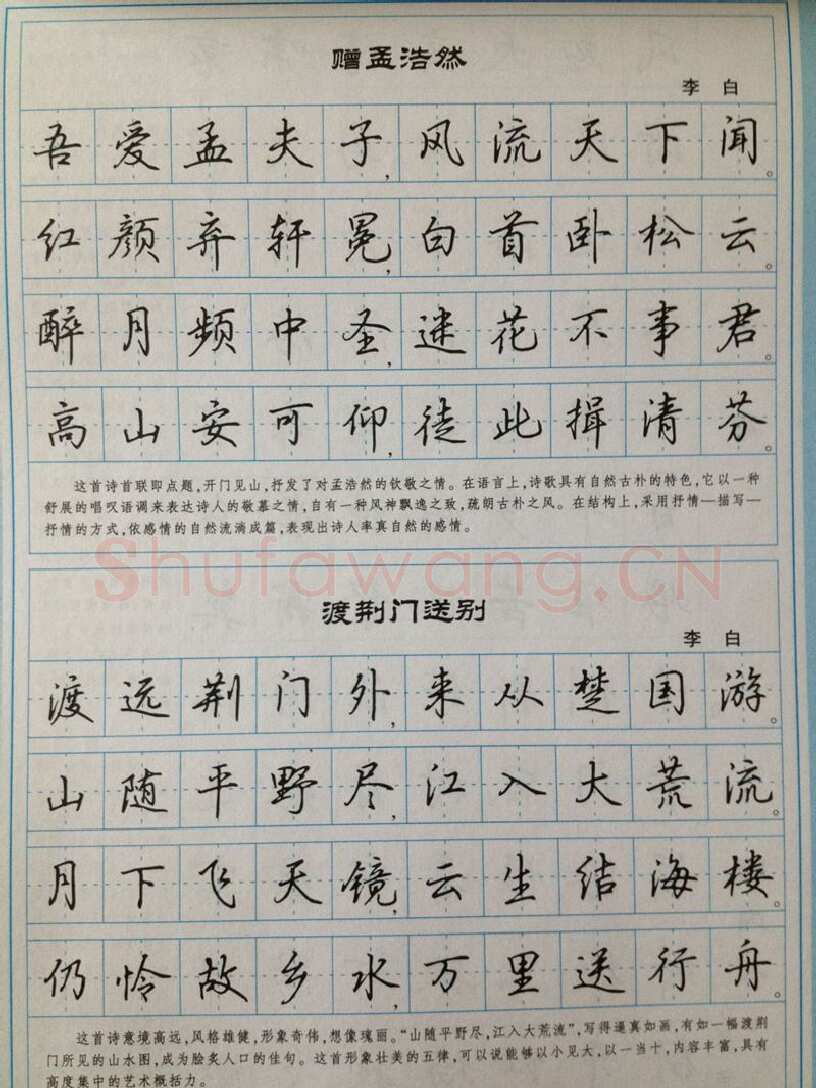 赠孟浩然
李 白
吾爱孟夫子,风流天下闻。
红颜弃轩冕,白首卧松云。
醉月频中圣,迷花不事君。
高山安可仰,徒此揖清芬。
这首诗首联即点题,开门见山,抒发了对孟浩然的钦敬之情。在语言上,诗歌具有自然古朴的特色,它以一种
舒展的唱叹语调来表达诗人的敬慕之情,自有一种风神飘逸之致,疏朗古朴之风。在结构上,采用抒情—描写—
抒情的方式,依感情的自然流淌成篇,表现出诗人率真自然的感情。
Shufawang.CN
渡荆门送别
李 白
渡远荆门外,来从楚国游。
山随平野尽,江入大荒流。
月下飞天镜,云生结海楼。
仍怜故乡水,万里送行舟。
这首诗意境高远,风格雄健,形象奇伟,想像瑰丽。“山随平野尽,江入大荒流”,写得逼真如画,有如一幅渡荆
门所见的山水图,成为脍炙人口的佳句。这首形象壮美的五律,可以说能够以小见大,以一当十,内容丰富,具有
高度集中的艺术概括力。